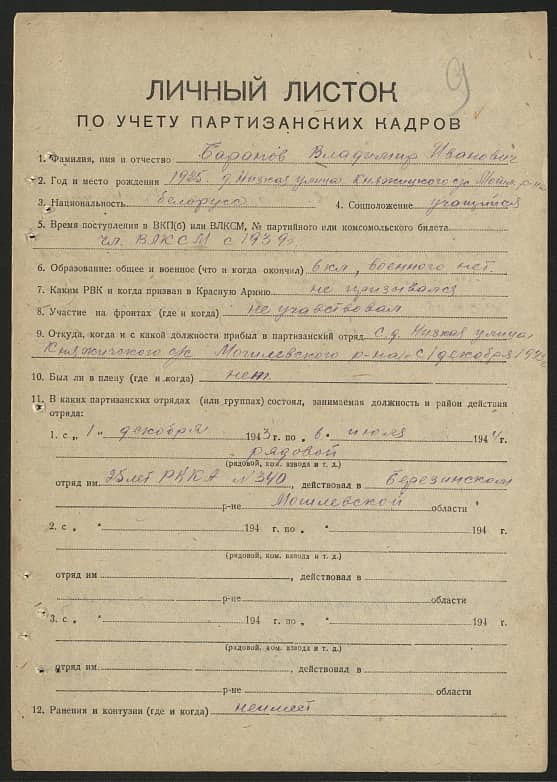 9
ЛИЧНЫЙ ЛИСТОК
ПО УЧЕТУ ПАРТИЗАНСКИХ КАДРОВ
1. Фамилия, имя и отчество Баранов Владимир Иванович
2. Год и место рождения 1925. д. Низкая улица Княжицкого с/с Могил. р-на
3. Национальность белоруса 4. Соцположение учащийся
5. Время поступления в ВКП(б) или ВЛКСМ, № партийного или комсомольского билета
чл. ВЛКСМ с 1939 г.
6. Образование: общее и военное (что и когда окончил) 6 кл, военного нет.
7. Каким РВК и когда призван в Красную Армию не призывался
8. Участие на фронтах (где и когда) не учавствовал
9. Откуда, когда и с какой должности прибыл в партизанский отряд с д. Низкая улица
Княжичского с/с Могилевского р-на с 1 декабря
10. Был ли в плену (где и когда) нет.
11. В каких партизанских отрядах (или группах) состоял, занимаемая должность и район действия
отряда:
1. с „ 1 " декабря 1943 г. по „ 6 " июля 1944 г.
рядовой
(рядовой, ком. взвода и т. д.)
отряд им 25 лет РККА №340, действовал в Березинском
р-не Могилевской области
2. с „ " 194 г. по „ " 194 г.
(рядовой, ком. взвода и т. д.)
отряд им , действовал в
р-не области
3. с „ " 194 г. по „ " 194 г.
(рядовой, ком. взвода и т. д.)
отряд им , действовал в
р-не области
12. Ранения и контузии (где и когда) неимеет